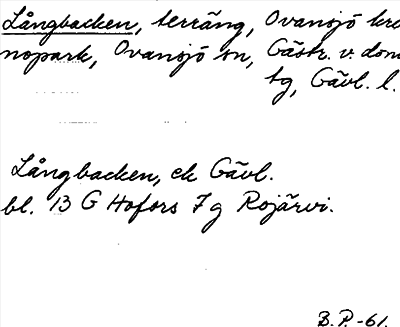 Långbacken, terräng, Ovansjö kro
nopark, Ovansjö sn, Gästr. v. dom
tg, Gävl. l.
Långbacken, ek Gävl.
bl. 13 G Hofors 7 g Rojärvi.
B.P.-61.